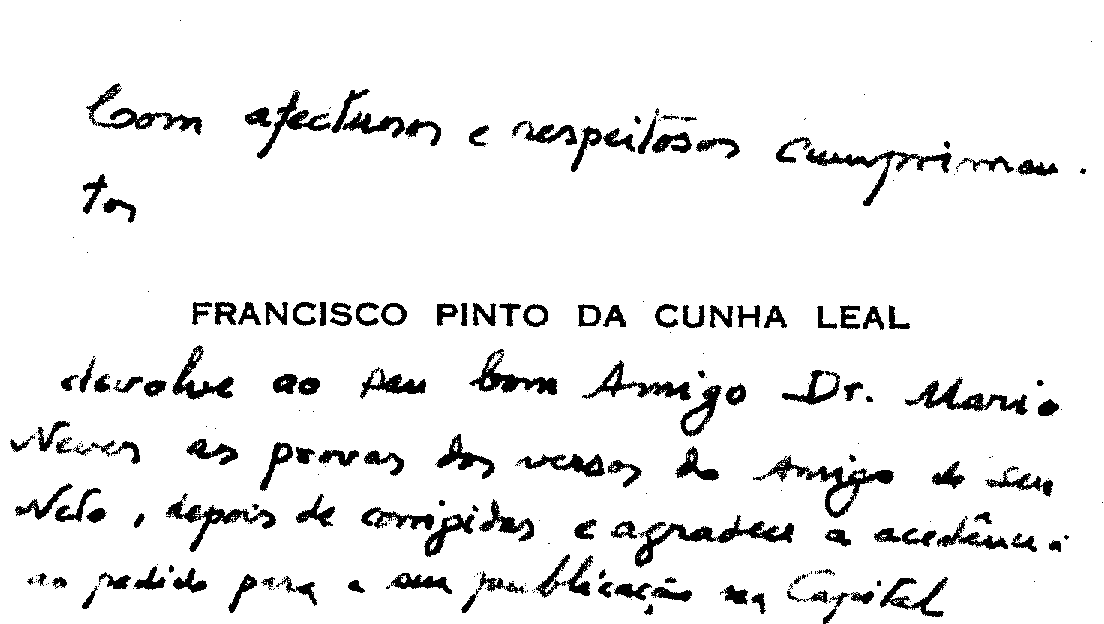 Com afectuosos e respeitosos cumprimen-
tos
FRANCISCO PINTO DA CUNHA LEAL
devolve ao seu bom Amigo Dr. Mario
Neves as provas dos versos do Amigo do seu
Neto, depois de corrigidas e agradece a acedência
ao pedido para a sua publicação na Capital